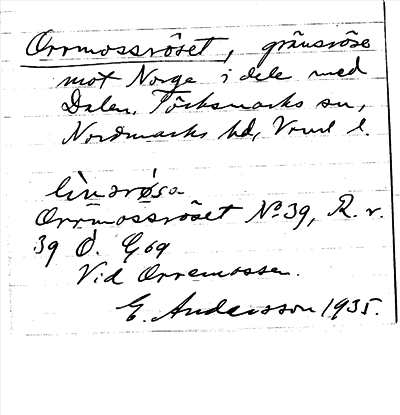 Orrmossröset, gränsröse
mot Norge i dele med
Dalen, Töcksmarks sn,
Nordmarks hd, Vrml l.
lìnǝrøsa
Orrmossröset Nº 39, R. v.
39 Ö. G69
Vid Orremossen.
E. Andersson 1935.